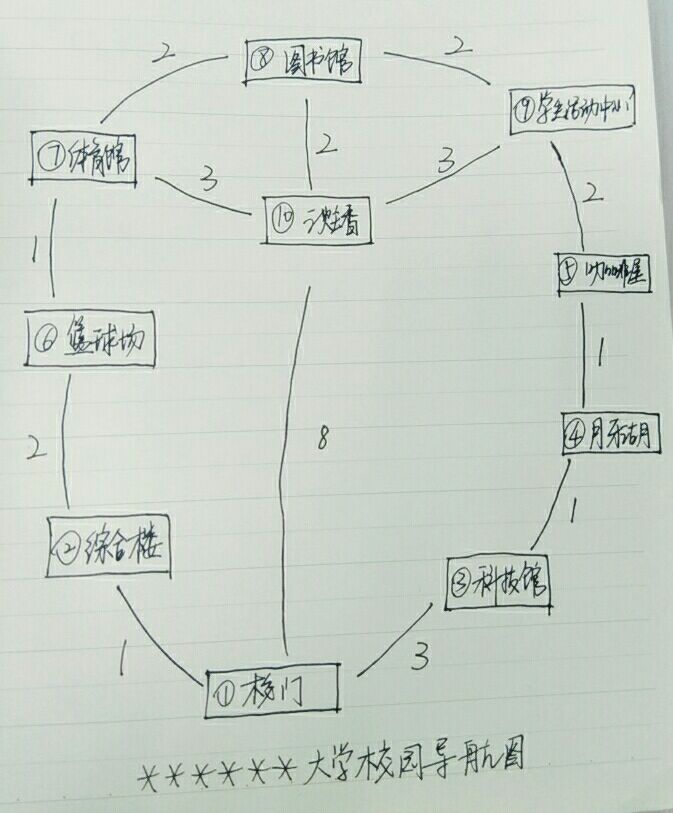 ⑧ 图书馆
2
2
⑨ 学生活动中心
⑦ 体育馆
2
3
3
⑩
2
1
⑤ 咖啡屋
⑥ 篮球场
1
8
④ 月牙湖
2
1
② 综合楼
③ 科技馆
1
3
① 校门
****** 大学校园导航图